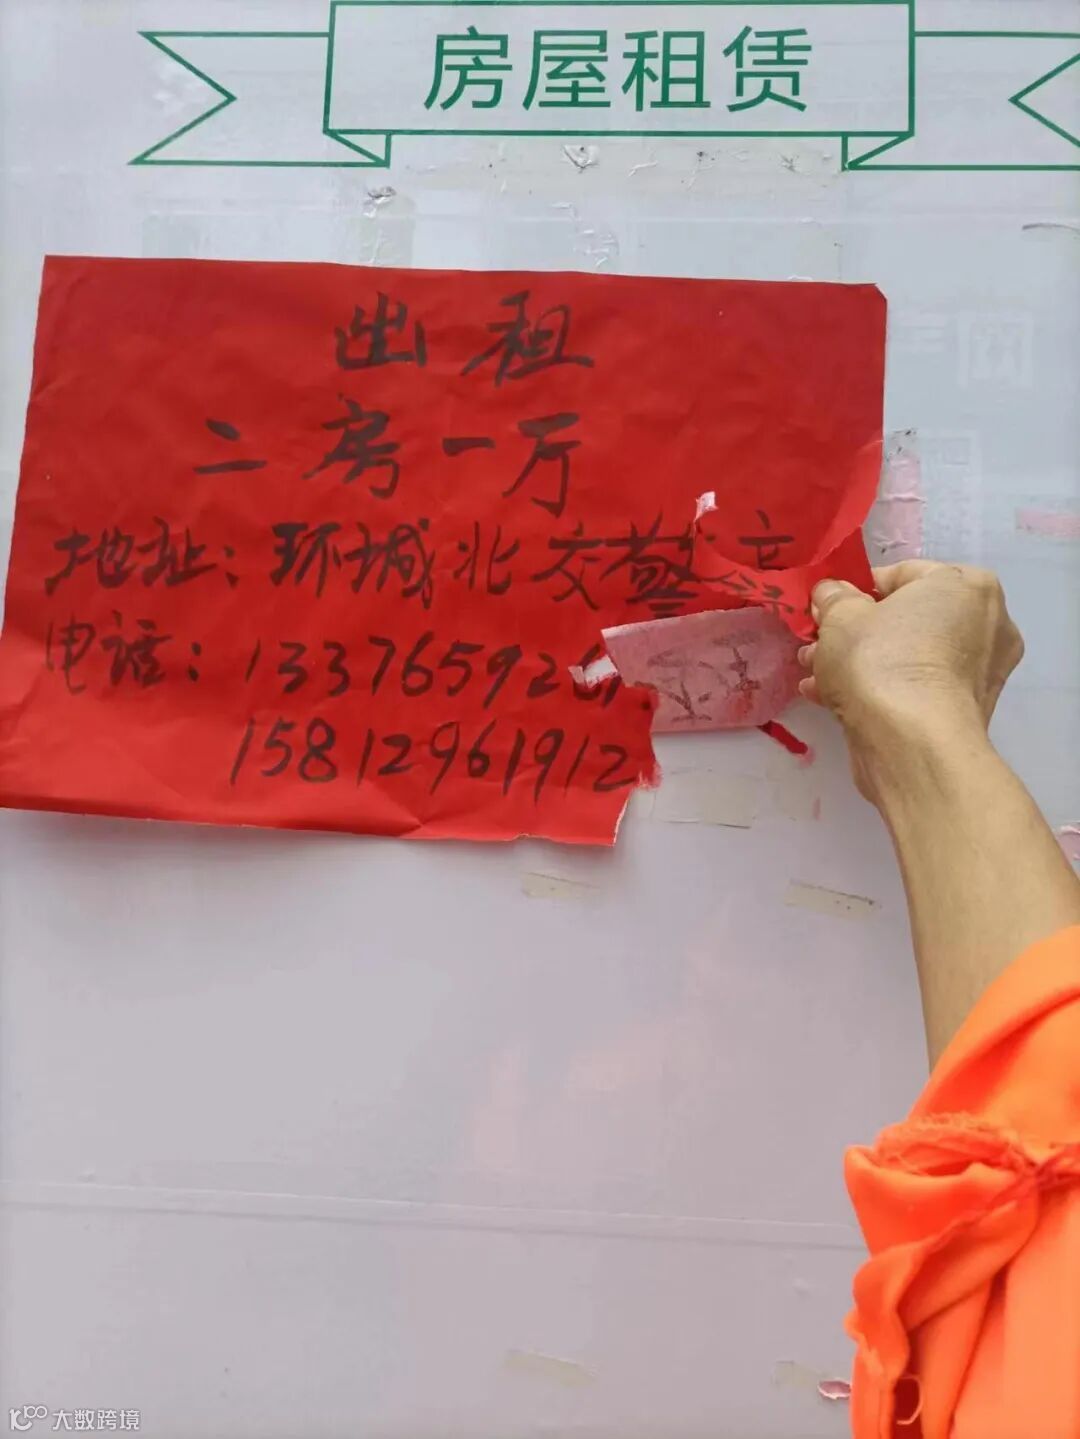 房屋租赁
出租
二房一厅
地址：环城北交警
电话：133765926
15812961912
大数跨境